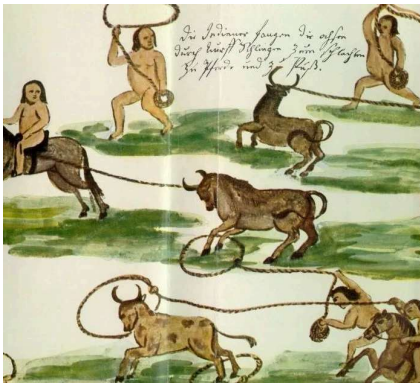 Die Indianer fangen die ochsen
durch wurff Schlingen zum schlachten
zu Pferde und zu Fuß.